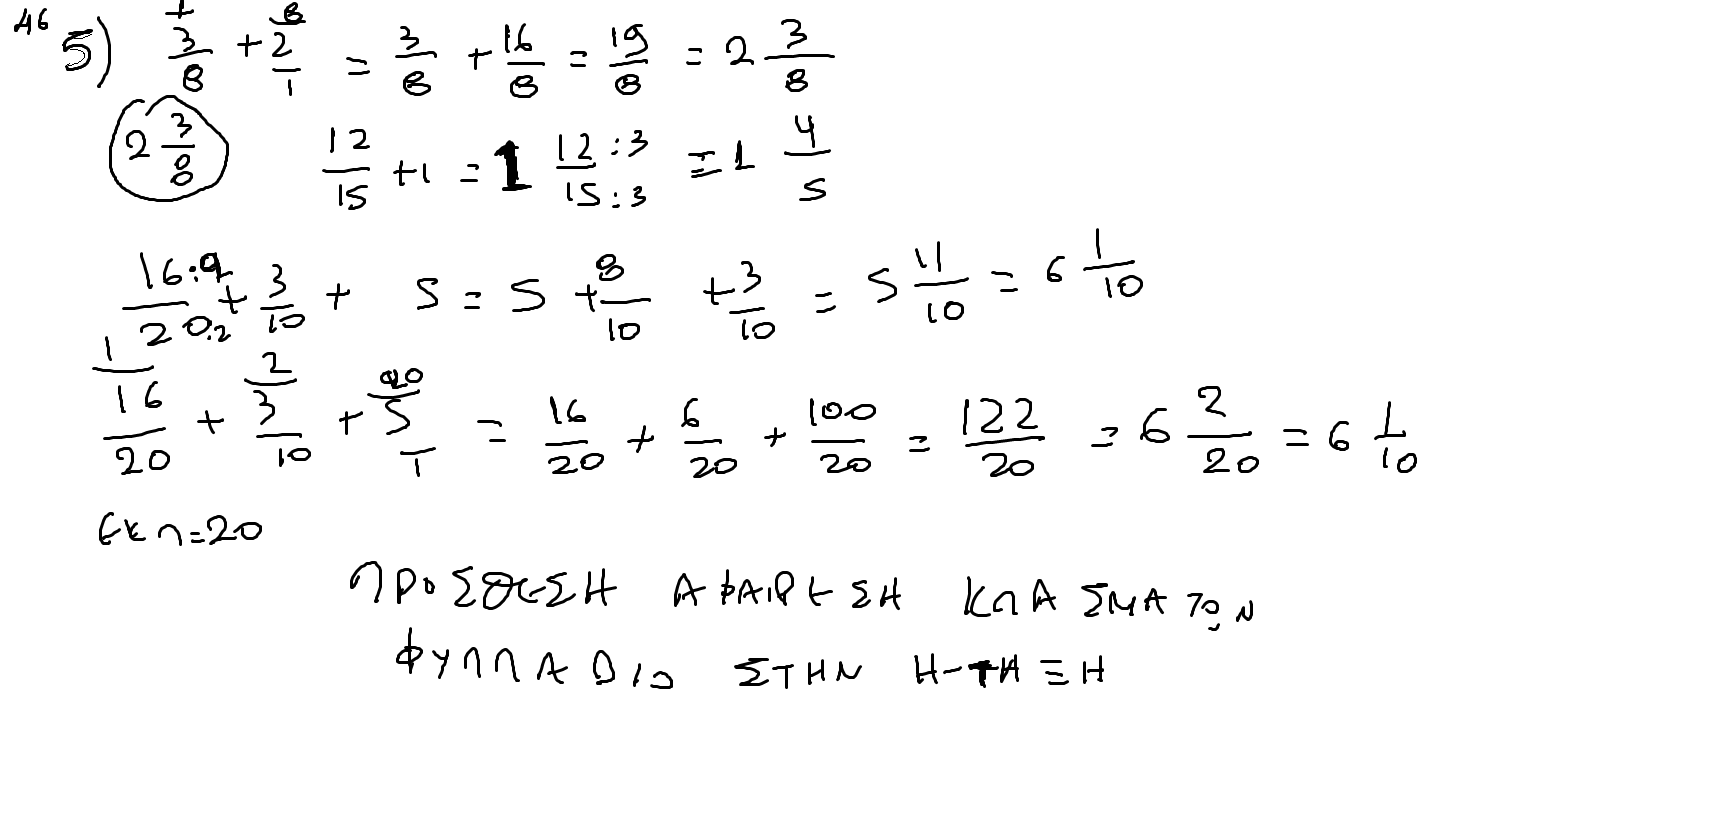 46 5) 3/8 + 2/1 = 3/8 + 16/8 = 19/8 = 2 3/8
2 3/8 12/15 + 1 = 1 12:3/15:3 = 1 4/5
16:2/20:2 + 3/10 + 5 = 5 + 8/10 + 3/10 = 5 11/10 = 6 1/10
16/20 + 3/10 + 5/1 = 16/20 + 6/20 + 100/20 = 122/20 = 6 2/20 = 6 1/10
ΕΚΠ=20
ΠΡΟΣΘΕΣΗ ΑΦΑΙΡΕΣΗ ΚΛΑΣΜΑΤΩΝ
ΦΥΛΛΑΔΙΟ ΣΤΗΝ Η-ΤΗΞΗ